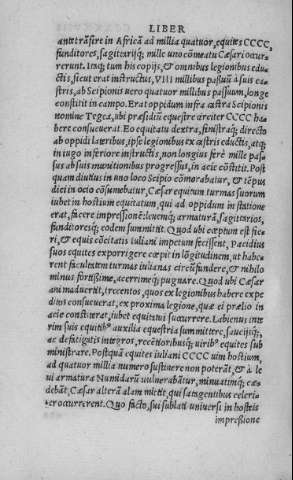 LIBER
antẽ trãsire in Africã ad millia quatuor, equites CCCC,
funditores, sagittariisq; mille uno cõmeatu Cæsari occur
rerunt. Itaq; tum his copijs, & omnibus legionibus edu
ctis, sicut erat instructus, VIII millibus passuũ à suis ca
stris, ab Scipionis uero quatuor millibus passuum, longe
constitit in campo. Erat oppidum infra castra Scipionis
nomine Tegea, ubi præsidiũ equestre circiter CCCC ha
bere consuerat. Eo equitatu dextra, sinistraq; directo
ab oppidi lateribus, ipse legionibus ex castris eductis, atq;
in iugo inferiore instructis, non longius ferè mille pas
sus ab suis munitionibus progressus, in acie cõstitit. Post
quam diutius in uno loco Scipio cõmorabatur, & tẽpus
diei in ocio cõsumebatur, Cæsar equitum turmas suorum
iubet in hostium equitatum, qui ad oppidum in statione
erat, facere impressionẽ: leuemq; armaturã, sagittarios,
funditoresq; eodem summittit. Quod ubi cæptum est fie
ri, & equis cõcitatis iuliani impetum fecissent, Pacidius
suos equites exporrigere cœpit in lõgitudinem, ut habe
rent facultatem turmas iulianas circũfundere, & nihilo
minus fortissime, acerrimeq; pugnare. Quod ubi Cæsar
animaduertit, trecentos, quos ex legionibus habere expe
ditos consueuerat, ex proxima legione, quæ ei prælio in
acie constiterat, iubet equitatui succurrere. Labienus inte
rim suis equitib⁹ auxilia equestria summittere, saucijsq;,
ac defatigatis integros, recentioribusq; uirib⁹ equites sub
ministrare. Postquã equites iuliani CCCC uim hostium,
ad quatuor millia numero sustinere non poterãt, & à le
ui armatura Numidarũ uulnerabãtur, minutatimq; cæ
debãt, Cæsar alterã alam mittit, qui satagentibus celeri
ter occurrerent. Quo facto, sui sublati uniuersi in hostis
impreßione